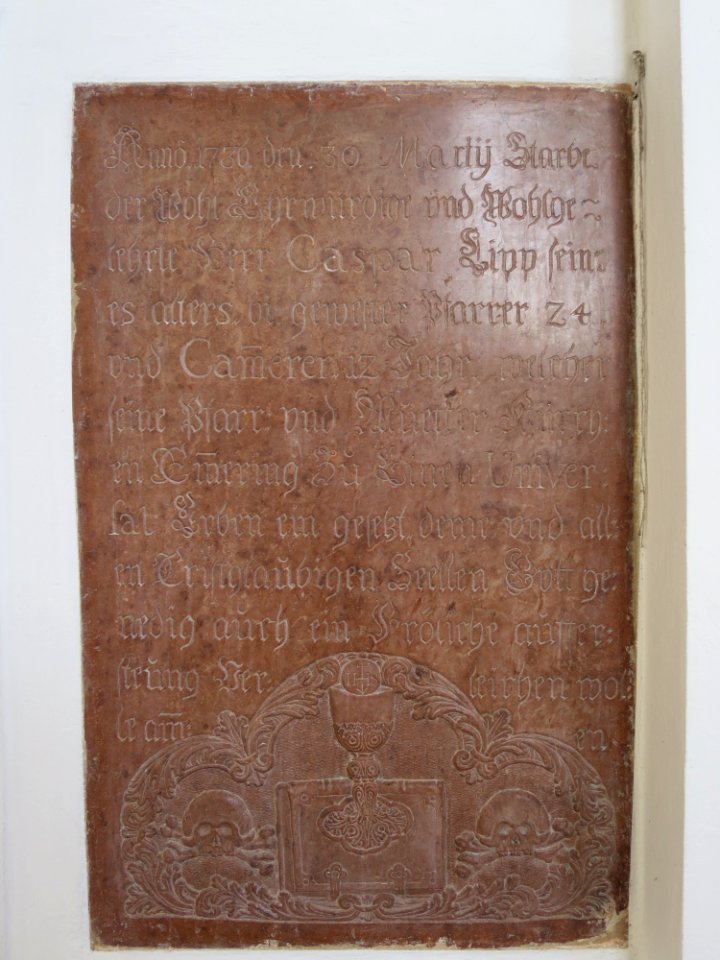 Anno 1736 den 30 Martij Starbe
der Wohl Ehrwürdige vnd Wohlge¬
lehrte Herr Caspar Lipp sein:
es alters 61 gewester Pfarrer 24
vnd Cam̄eren 12 Jahr, welcher
seine Pfarr: vnd Muetter Kürch:
en Em̄ering Zu Einen Univer:
sal Erben ein gesetzt, deme vnd all:
en Cristglaubigen Seellen Gott ge:
nedig auch ein Fröliche auffer:
steūng Ver: leichen wol:
le am̄: en